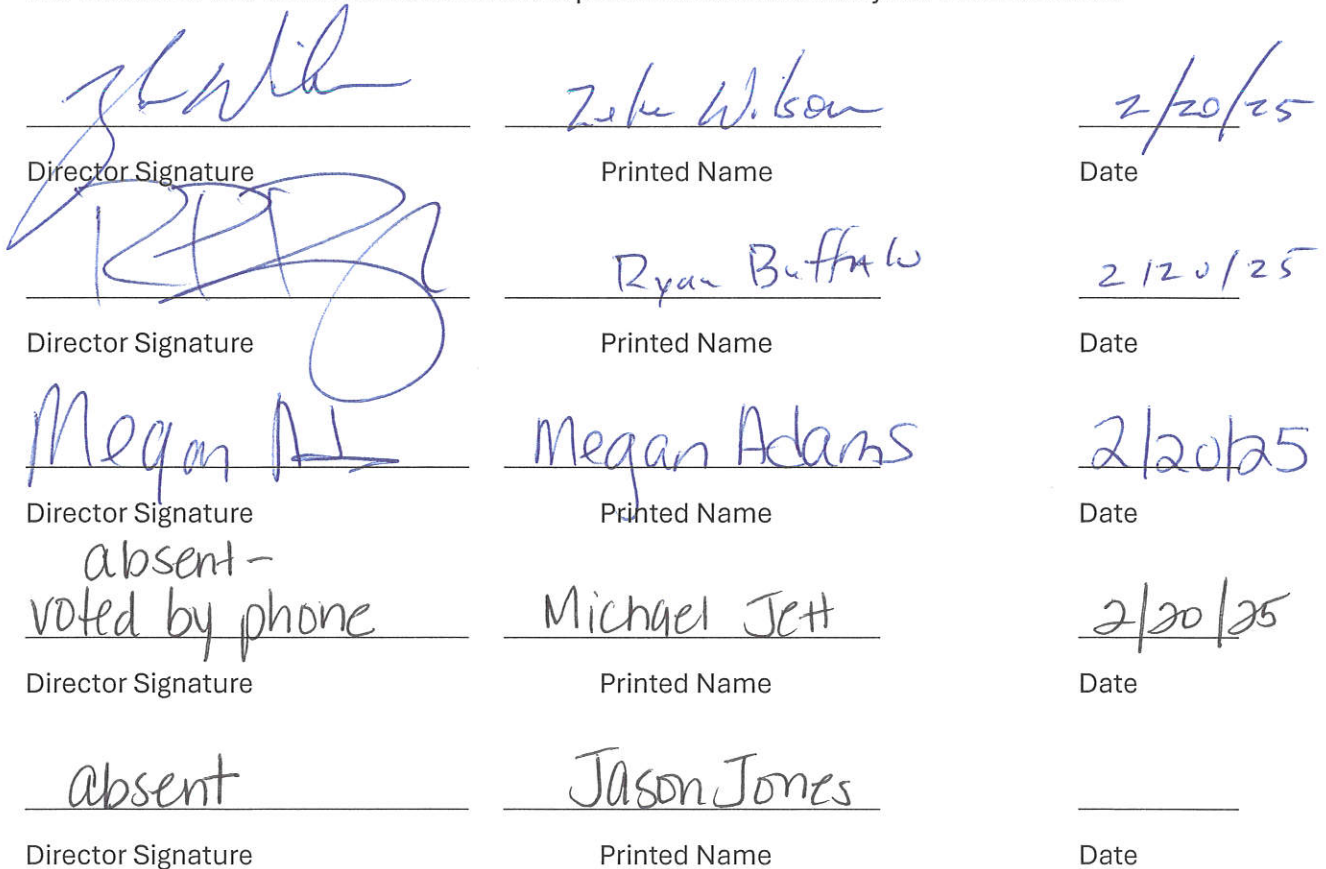 Zeke Wilson 2/20/25
Director Signature Printed Name Date
Ryan Buffalo 2/20/25
Director Signature Printed Name Date
Megan Megan Adams 2/20/25
Director Signature Printed Name Date
absent-
voted by phone Michael Jett 2/20/25
Director Signature Printed Name Date
absent Jason Jones
Director Signature Printed Name Date